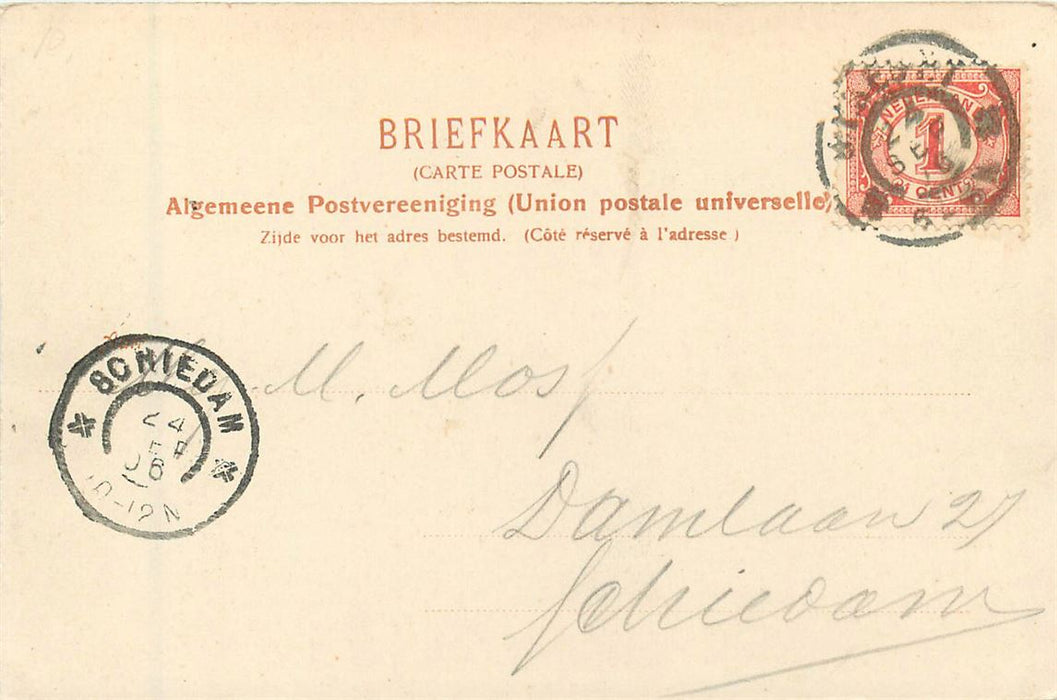 BRIEFKAART
(CARTE POSTALE)
Algemeene Postvereeniging (Union postale universelle)
Zijde voor het adres bestemd. (Côté réservé à l'adresse )
NEDERLAND
1
1 CENT
SCHIEDAM
24
06
10-12N
M.
Damlaan 27
Schiedam